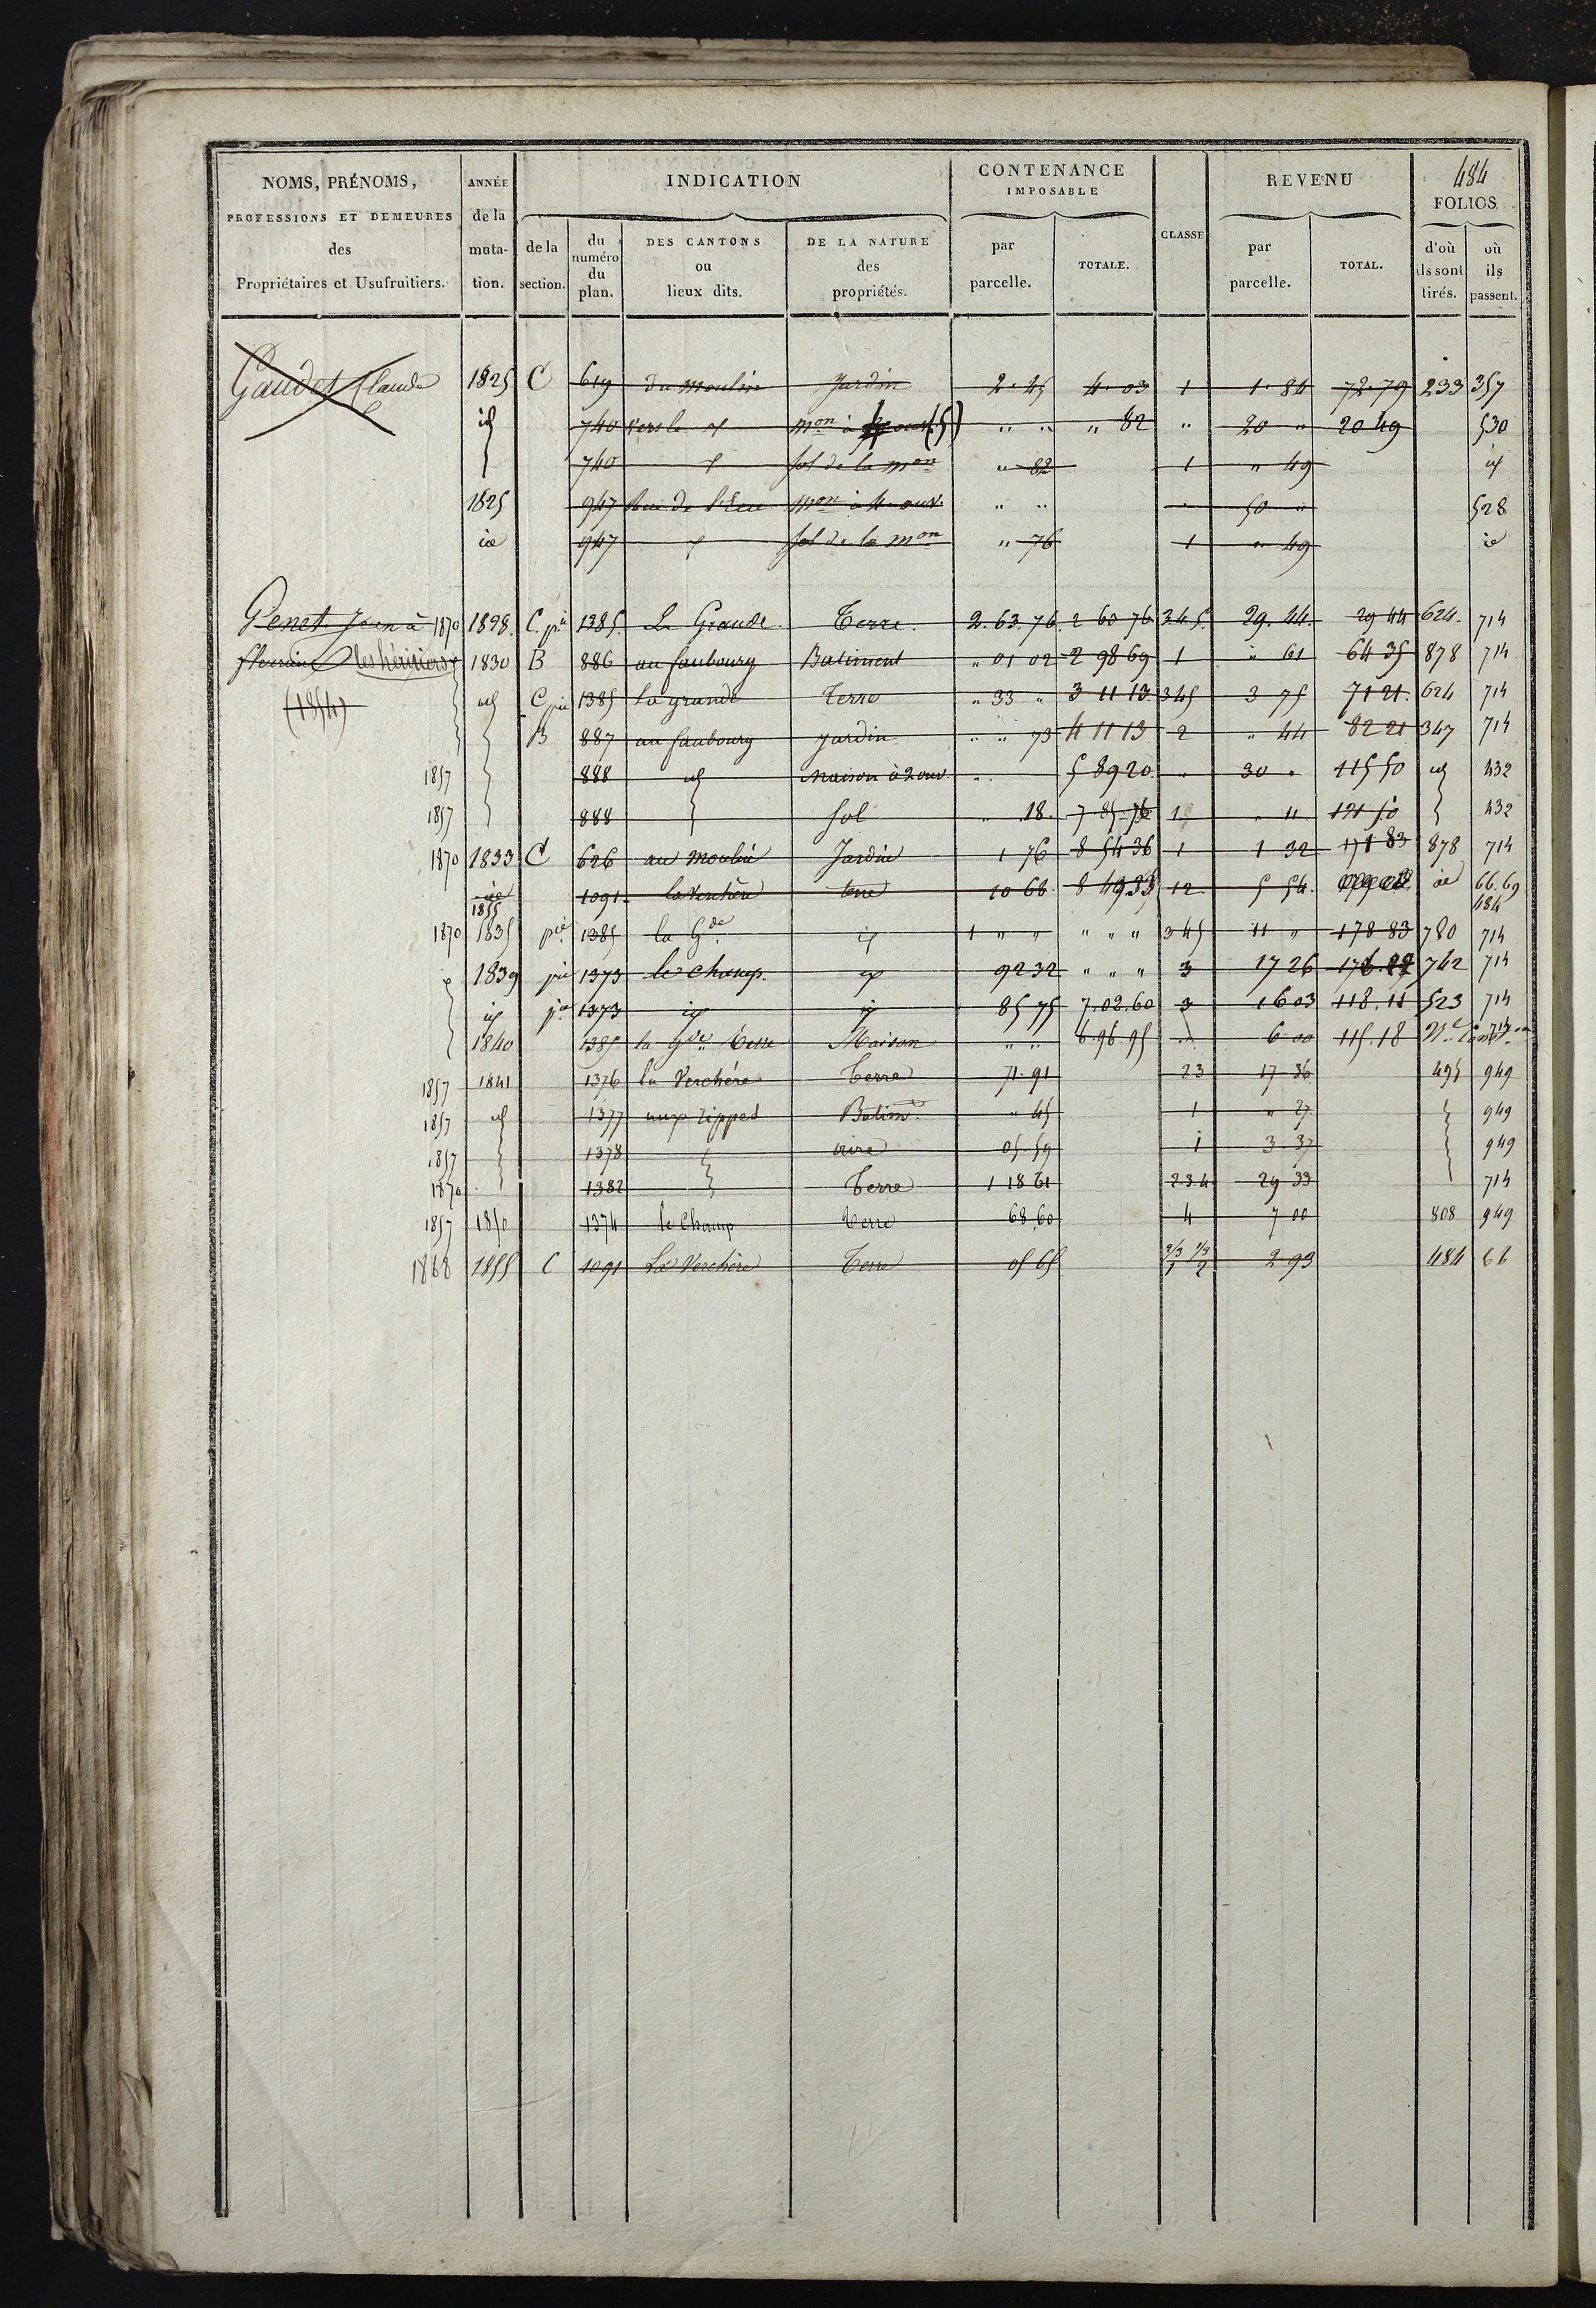 484
NOMS, PRÉNOMS, PROFESSIONS ET DEMEURES des Propriétaires et Usufruitiers. ANNÉE de la muta- tion. INDICATION de la section. du numéro du plan. DES CANTONS ou lieux dits. DE LA NATURE des propriétés. CONTENANCE IMPOSABLE par parcelle. TOTALE. CLASSE REVENU par parcelle. TOTAL. FOLIOS d'où ils sont tirés. où ils passent.
Gaudet Claude 1825 C 619 du moulin Jardin 2. 45 4. 03 1 1. 84 72. 79 233 357
id 740 vers le mon à (5) " " " 82 " 20 " 20 49 530
740 sol de la mon " 82 1 " 49 id
1825 947 Rue de mon à 4 ouv. " " " 50 " 528
id 947 sol de la mon " 76 1 " 49 id
Genet Jean à 1870 1828. C. pie 1385. La Grande. Terre. 2. 63. 76. 2 60 76 345. 29. 44. 29 44 624. 714
les héritiers 1830 B 886 au faubourg Batiment " 01 02 2 98 69 1 " 61 64 35 878 714
(1854) id C pie 1385 la grande Terre " 33 " 3 11 13 345 3 75 71 21. 624 714
B 887 au faubourg Jardin " " 73 4 11 13 2 " 44 82 21 347 714
1857 888 id Maison à 2 ouv " 5 89 20 " 30 " 115 50 id 432
1857 888 Sol " 18. 7 85 76 1 " 11 121 50 432
1870 1833 C 626 au moulin Jardin 1 76 8 54 36 1 1 32 171 83 878 714
id 1855 1091. la Verchère terre 10 66 8 49 33 12 5 54. id 66. 69 484
1870 1835 pie 1385 la Gde id 1 " " " " " 345 11 " 178 83 780 714
1839 pie 1373 le champ. id 92 32 " " " 3 17 26 742 714
id pie 1373 id id 85 75 7. 02. 60 3 16 03 118. 11 523 714
1840 1385 la Gde Terre Maison " " 6. 96. 95 " 6 00 115. 18 714
1857 1841 1376 la Verchère Terre 71. 91 23 17 36 495 949
1857 id 1377 aux rippes Batimt " 45 1 " 27 949
1857 1378 aire 05 59 1 3 37 949
1870 1382 Terre 1 18 61 234 29 33 714
1857 1850 1374 le Champ Terre 68 60 4 7 00 808 949
1868 1855 C 1091 La Verchère Terre 05 65 2/3 1/3 1 2 2 93 484 66